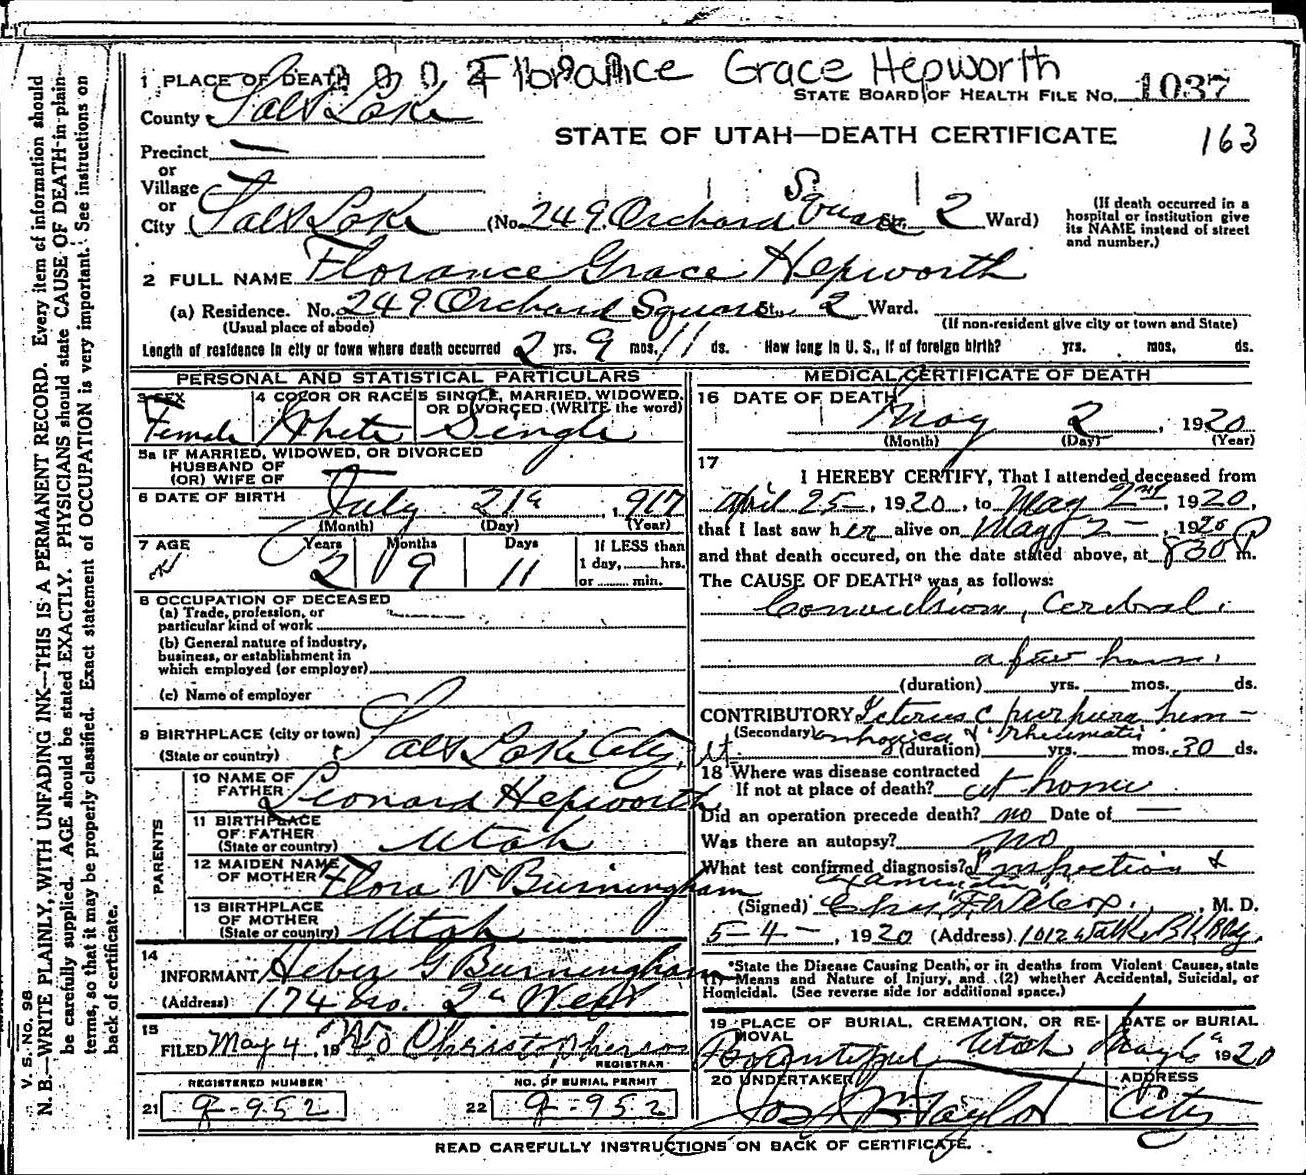 Florance Grace Hepworth
1 PLACE OF DEATH
STATE BOARD OF HEALTH FILE NO. 1037
County Salt Lake
STATE OF UTAH—DEATH CERTIFICATE
163
Precinct —
or
Village
or
City Salt Lake (No. 249 Orchard Square St. 2 Ward)
(If death occurred in a
hospital or institution give
its NAME instead of street
and number.)
2 FULL NAME Florance Grace Hepworth
(a) Residence. No. 249 Orchard Square St. 2 Ward.
(Usual place of abode) (If non-resident give city or town and State)
Length of residence in city or town where death occurred 2 yrs. 9 mos. 11 ds. How long in U. S., if of foreign birth? yrs. mos. ds.
PERSONAL AND STATISTICAL PARTICULARS
3 SEX 4 COLOR OR RACE 5 SINGLE, MARRIED, WIDOWED,
OR DIVORCED (WRITE the word)
Female White Single
5a IF MARRIED, WIDOWED, OR DIVORCED
HUSBAND OF
(OR) WIFE OF
6 DATE OF BIRTH July 21 1917
(Month) (Day) (Year)
7 AGE Years Months Days If LESS than
1 day, hrs.
or min.
2 9 11
8 OCCUPATION OF DECEASED
(a) Trade, profession, or
particular kind of work
(b) General nature of industry,
business, or establishment in
which employed (or employer)
(c) Name of employer
9 BIRTHPLACE (city or town) Salt Lake City, Ut.
(State or country)
PARENTS
10 NAME OF
FATHER Leonard Hepworth
11 BIRTHPLACE
OF FATHER
(State or country) Utah
12 MAIDEN NAME
OF MOTHER Flora V Burningham
13 BIRTHPLACE
OF MOTHER
(State or country) Utah
14
INFORMANT Heber G Burningham
(Address) 174 No. 2 West
15
FILED May 4, 19 Christopherson
REGISTRAR
REGISTERED NUMBER NO. OF BURIAL PERMIT
21 9-952 22 9-952
MEDICAL CERTIFICATE OF DEATH
16 DATE OF DEATH
May 2, 1920
(Month) (Day) (Year)
17
I HEREBY CERTIFY, That I attended deceased from
April 25-, 1920, to May 2nd, 1920,
that I last saw her alive on May 2-, 1920
and that death occured, on the date stated above, at 830 P m.
The CAUSE OF DEATH* was as follows:
Convulsion, Cerebral.
a few hours.
(duration) yrs. mos. ds.
CONTRIBUTORY Icterus c purpura hem-
(Secondary) orrhagica & rheumatic
(duration) yrs. mos. 30 ds.
18 Where was disease contracted
If not at place of death? at home
Did an operation precede death? no Date of —
Was there an autopsy? no
What test confirmed diagnosis? Inspection &
examination
(Signed) Chas F. Wilcox, M. D.
5-4-, 1920 (Address) 1012 Walker Bk Bldg.
*State the Disease Causing Death, or in deaths from Violent Causes, state
(1) Means and Nature of Injury, and (2) whether Accidental, Suicidal, or
Homicidal. (See reverse side for additional space.)
19 PLACE OF BURIAL, CREMATION, OR RE-
MOVAL
DATE OF BURIAL
Bountiful Utah May 6 1920
20 UNDERTAKER ADDRESS
Jos Wm Taylor City
READ CAREFULLY INSTRUCTIONS ON BACK OF CERTIFICATE.
V. S. No. 98
N. B.—WRITE PLAINLY, WITH UNFADING INK—THIS IS A PERMANENT RECORD. Every item of information should
be carefully supplied. AGE should be stated EXACTLY. PHYSICIANS should state CAUSE OF DEATH in plain
terms, so that it may be properly classified. Exact statement of OCCUPATION is very important. See instructions on
back of certificate.